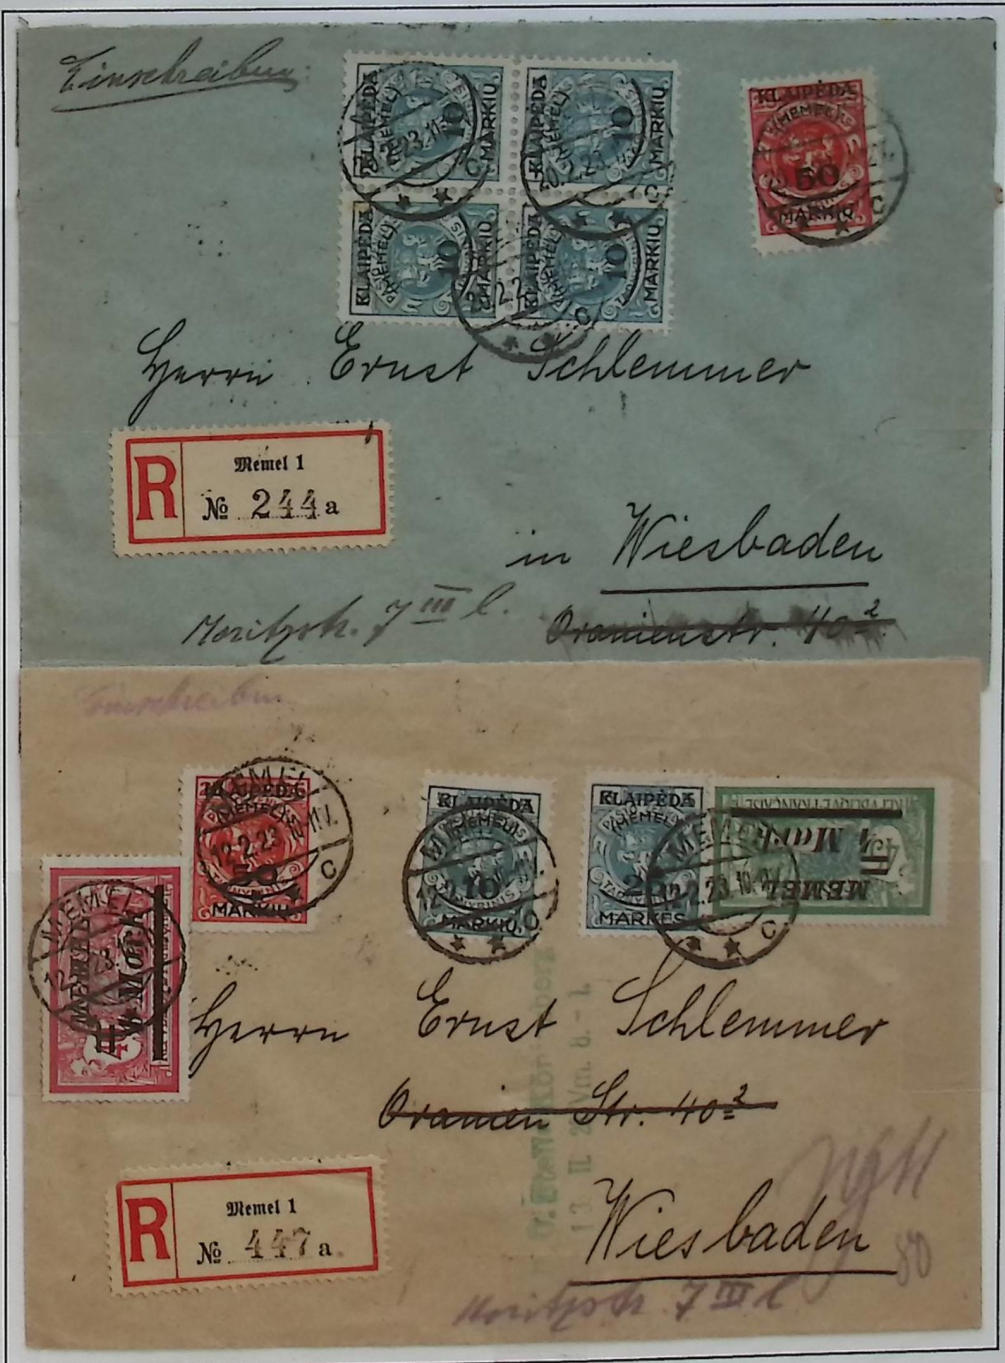 Einschreiben.
KLAIPĖDA
(MEMEL)
10
MARKIŲ
KLAIPĖDA
(MEMEL)
10
MARKIŲ
KLAIPĖDA
(MEMEL)
50
MARKIŲ
KLAIPĖDA
(MEMEL)
10
MARKIŲ
KLAIPĖDA
(MEMEL)
10
MARKIŲ
C
C
C
C
Herrn Ernst Schlemmer
R Memel 1
№ 244 a
in Wiesbaden
Moritzstr. 7 III l.
Oranienstr. 40²
Einschreiben
KLAIPĖDA
(MEMEL)
50
MARKIŲ
MEMEL
12.2.23.10-11V.
C
KLAIPĖDA
(MEMEL)
10
MARKIŲ
C
KLAIPĖDA
(MEMEL)
MARKĖS
MEMEL
12.2.23.10-11V.
C
MEMEL
4 Mark
MEMEL
Mark
Herrn Ernst Schlemmer
Oranien Str. 40²
R Memel 1
№ 447 a
Wiesbaden
80
Moritzstr. 7 III l